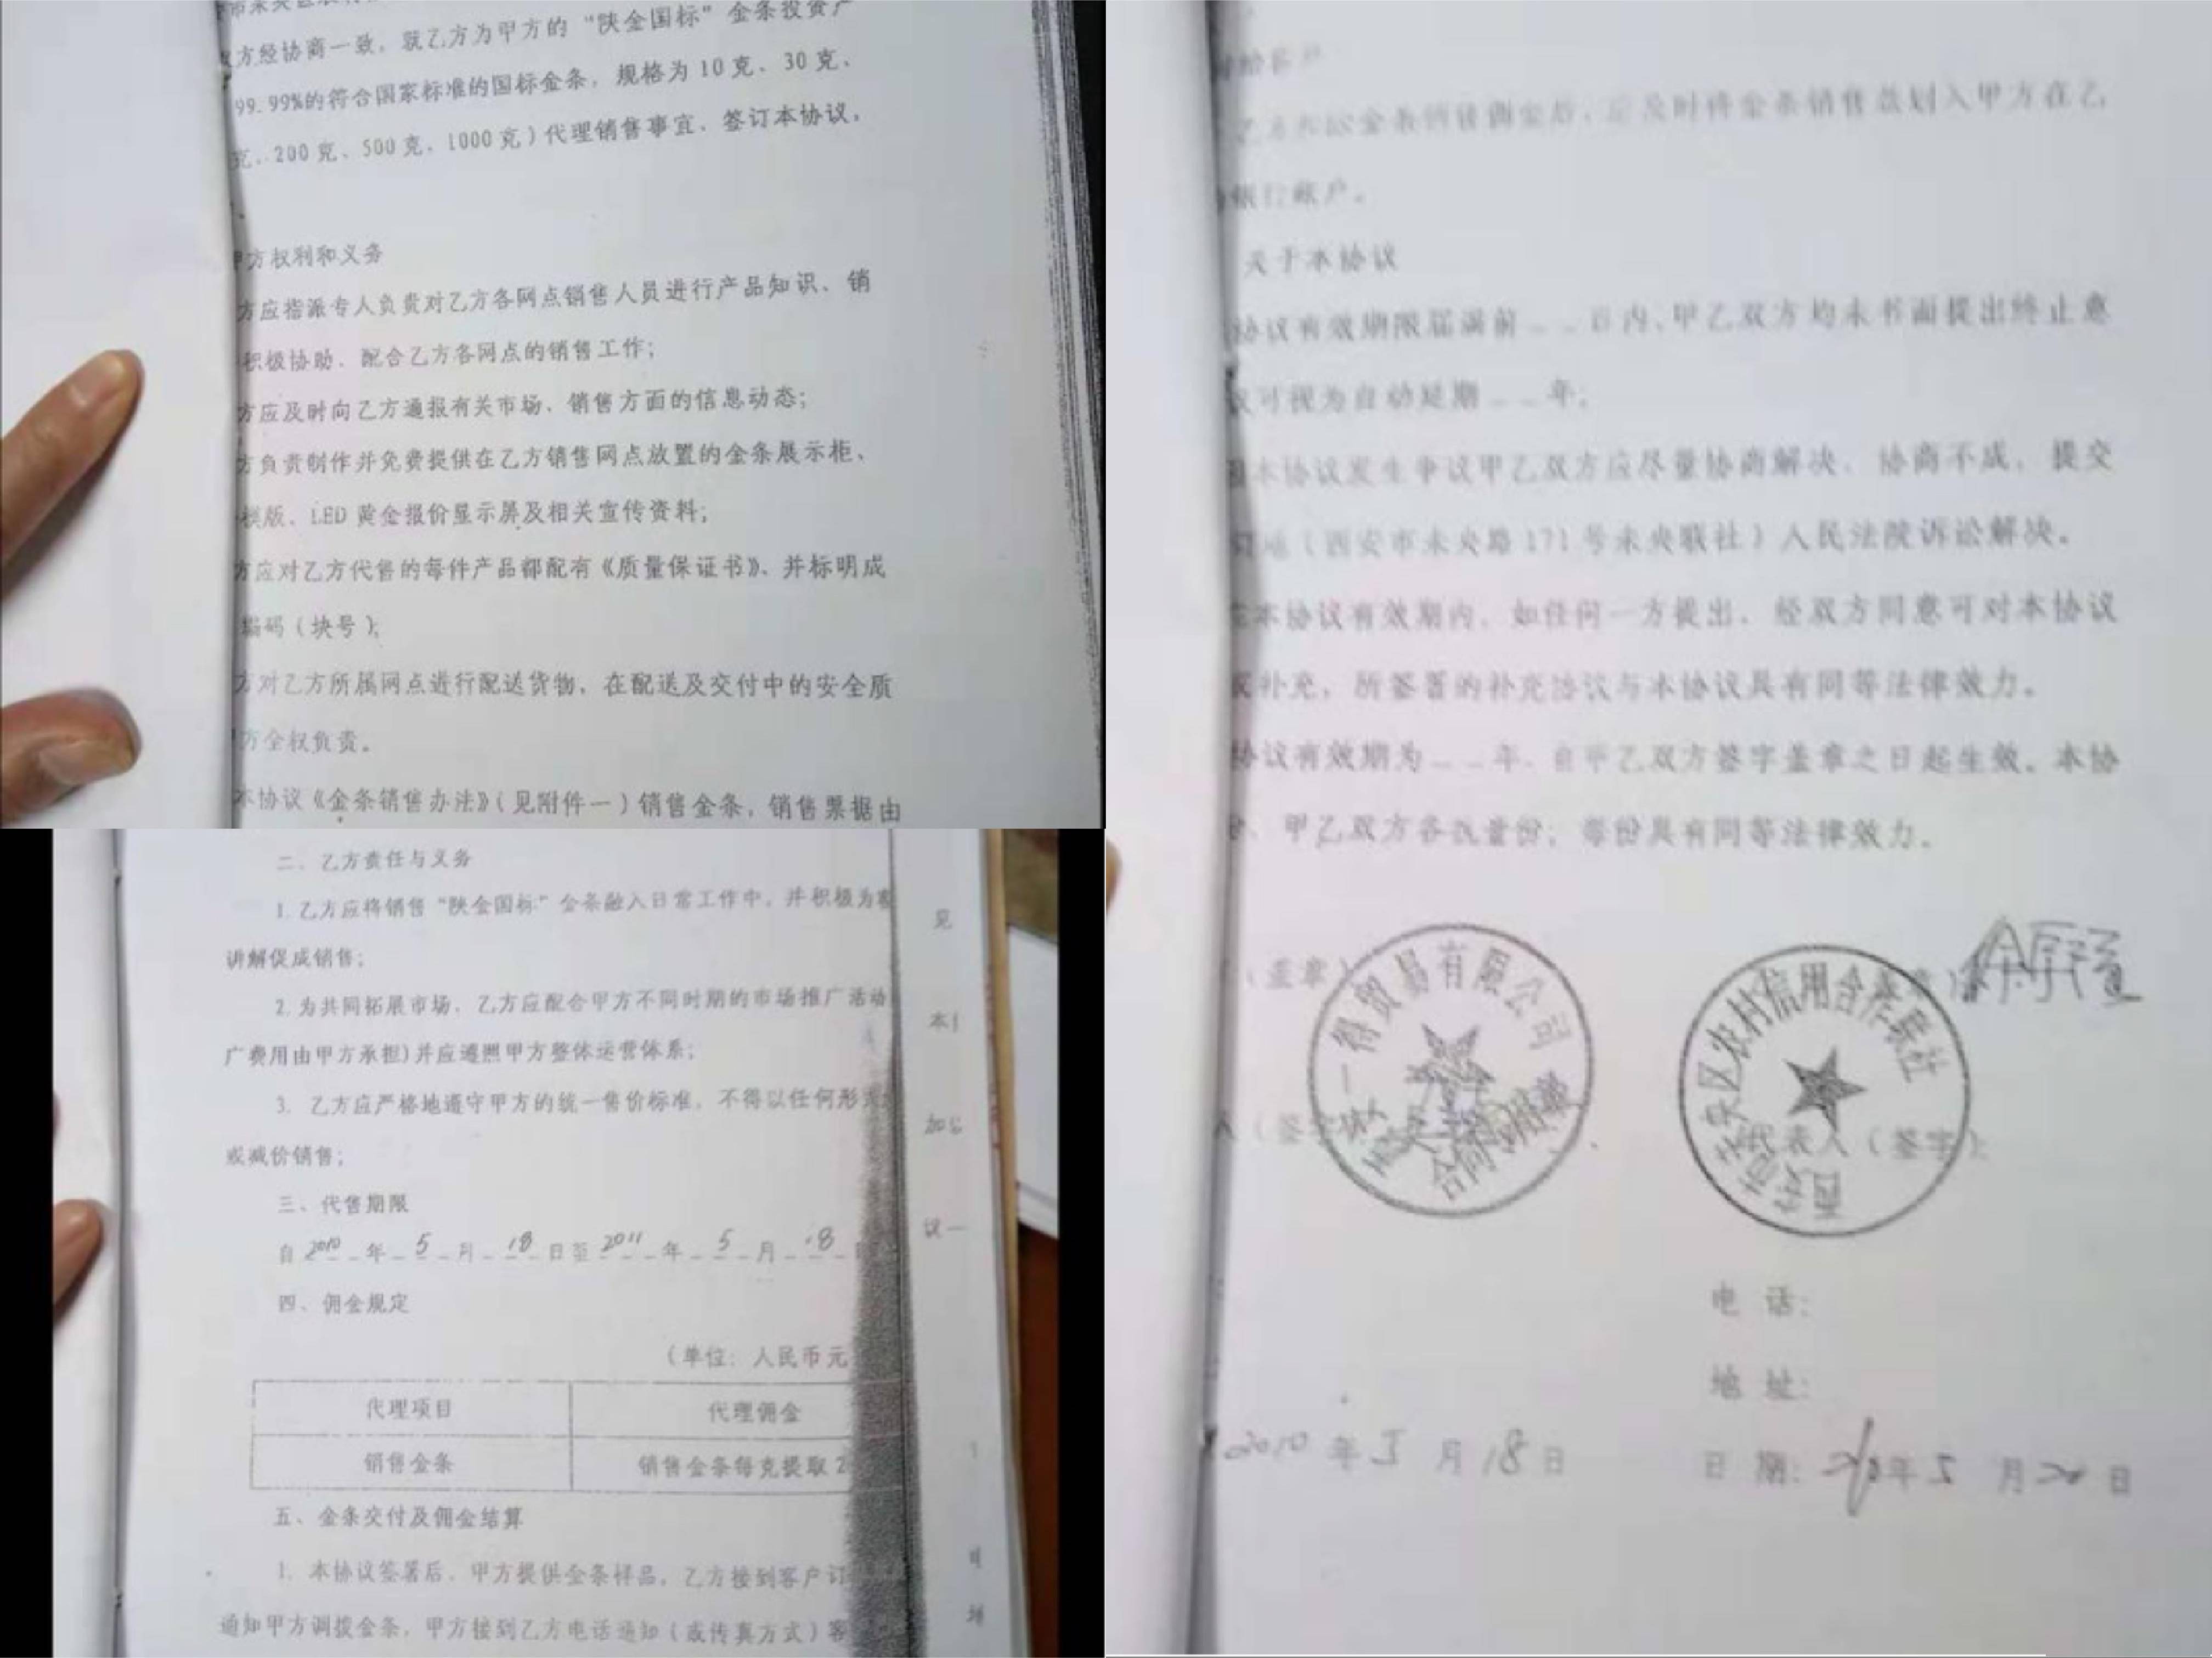 方经协商一致，就乙方为甲方的“陕金国标”金条投资产
99.99%的符合国家标准的国标金条，规格为10克、30克、
克、200克、500克、1000克）代理销售事宜、签订本协议，
甲方权利和义务
方应指派专人负责对乙方各网点销售人员进行产品知识、销
积极协助、配合乙方各网点的销售工作；
方应及时向乙方通报有关市场、销售方面的信息动态；
方负责制作并免费提供在乙方销售网点放置的金条展示柜、
模版、LED黄金报价显示屏及相关宣传资料；
方应对乙方代售的每件产品都配有《质量保证书》、并标明成
编码（块号）；
方对乙方所属网点进行配送货物，在配送及交付中的安全质
方全权负责。
本协议《金条销售办法》（见附件一）销售金条，销售票据由
二、乙方责任与义务
1.乙方应将销售“陕金国标”金条融入日常工作中，并积极为客
讲解促成销售；
2.为共同拓展市场，乙方应配合甲方不同时期的市场推广活动
广费用由甲方承担)并应遵照甲方整体运营体系；
3. 乙方应严格地遵守甲方的统一售价标准，不得以任何形式
或减价销售；
三、代售期限
自2010年5月18日至2011年5月18日
四、佣金规定
（单位：人民币元
代理项目 代理佣金
销售金条 销售金条每克提取2
五、金条交付及佣金结算
1. 本协议签署后，甲方提供金条样品，乙方接到客户订
通知甲方调拨金条，甲方接到乙方电话通知（或传真方式）客
见
本
议一
后，应及时将金条销售款划入甲方在乙
银行账户。
关于本协议
协议有效期限届满前__日内、甲乙双方均未书面提出终止意
议可视为自动延期__年；
因本协议发生争议甲乙双方应尽量协商解决，协商不成，提交
地（西安市未央路171号未央联社）人民法院诉讼解决。
在本协议有效期内，如任何一方提出，经双方同意可对本协议
或补充，所签署的补充协议与本协议具有同等法律效力。
协议有效期为__年，自甲乙双方签字盖章之日起生效。本协
甲乙双方各执壹份，每份具有同等法律效力。
（盖章）
一得贸易有限公司
合同专用章
西安市未央区农村信用合作联社
代表人（签字）：
电 话：
地 址：
2010年5月18日
日 期：2010年5月20日